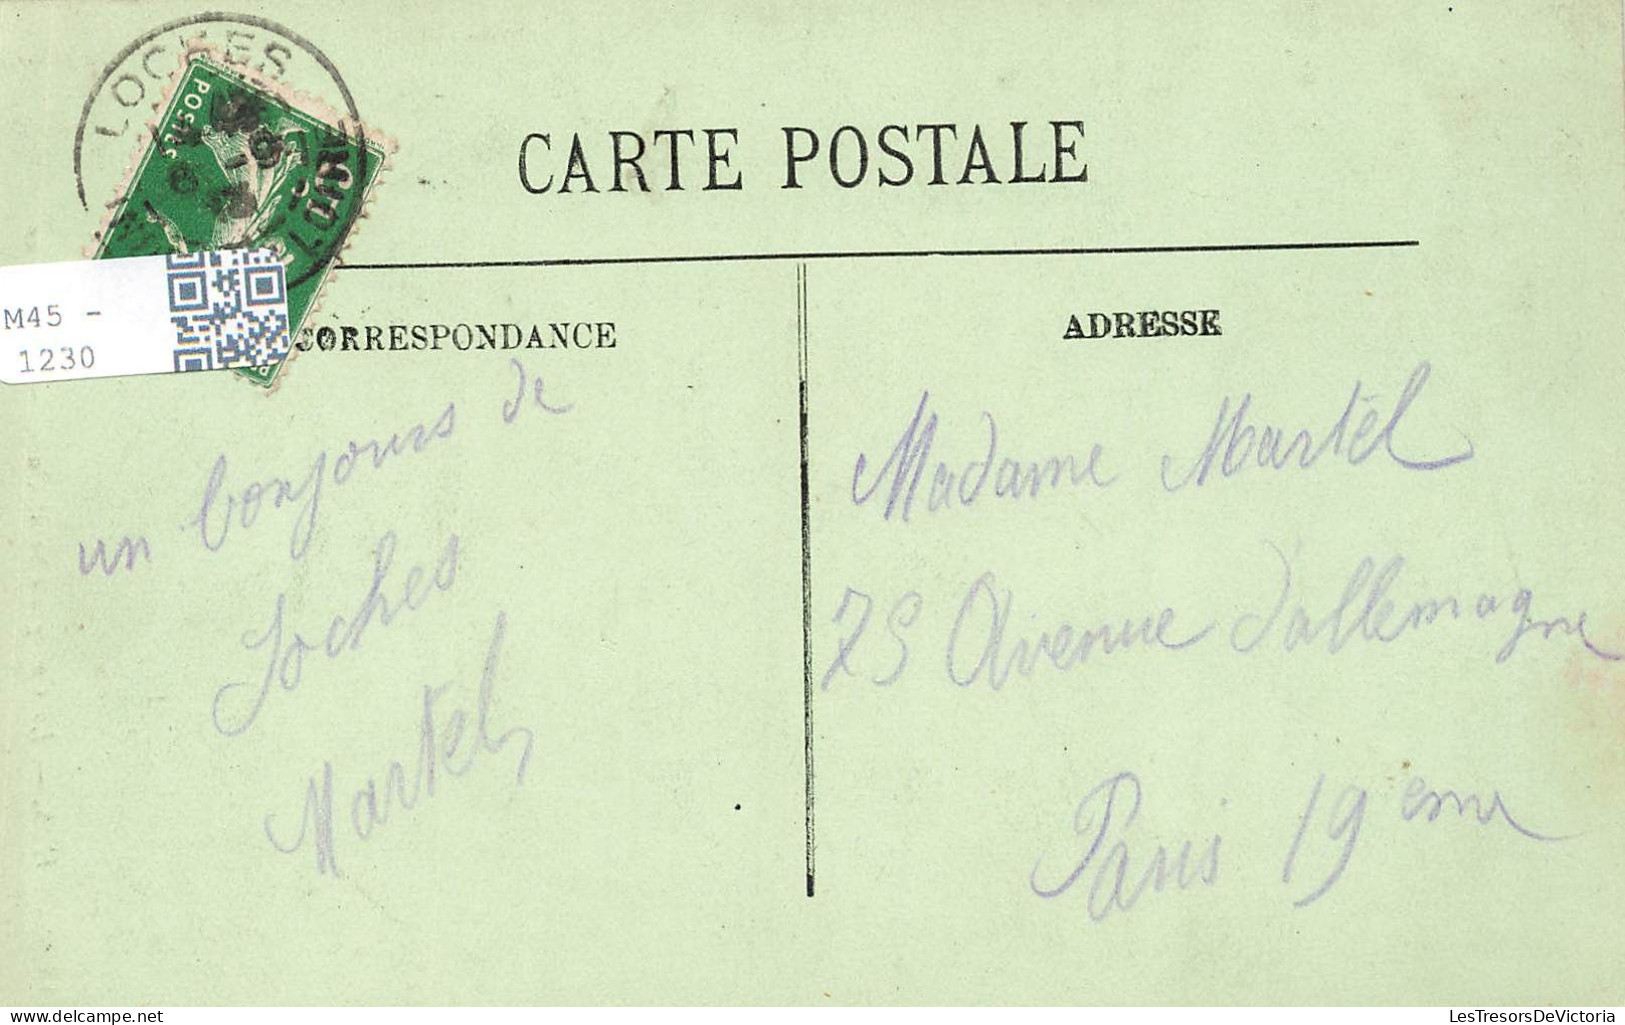 LOCHES
POSTES
CARTE POSTALE
M45 -
1230
CORRESPONDANCE
ADRESSE
un bonjours de
Loches
Martel
Madame Martel
75 Avenue dallemagne
Paris 19eme
delcampe.net
LesTresorsDeVictoria